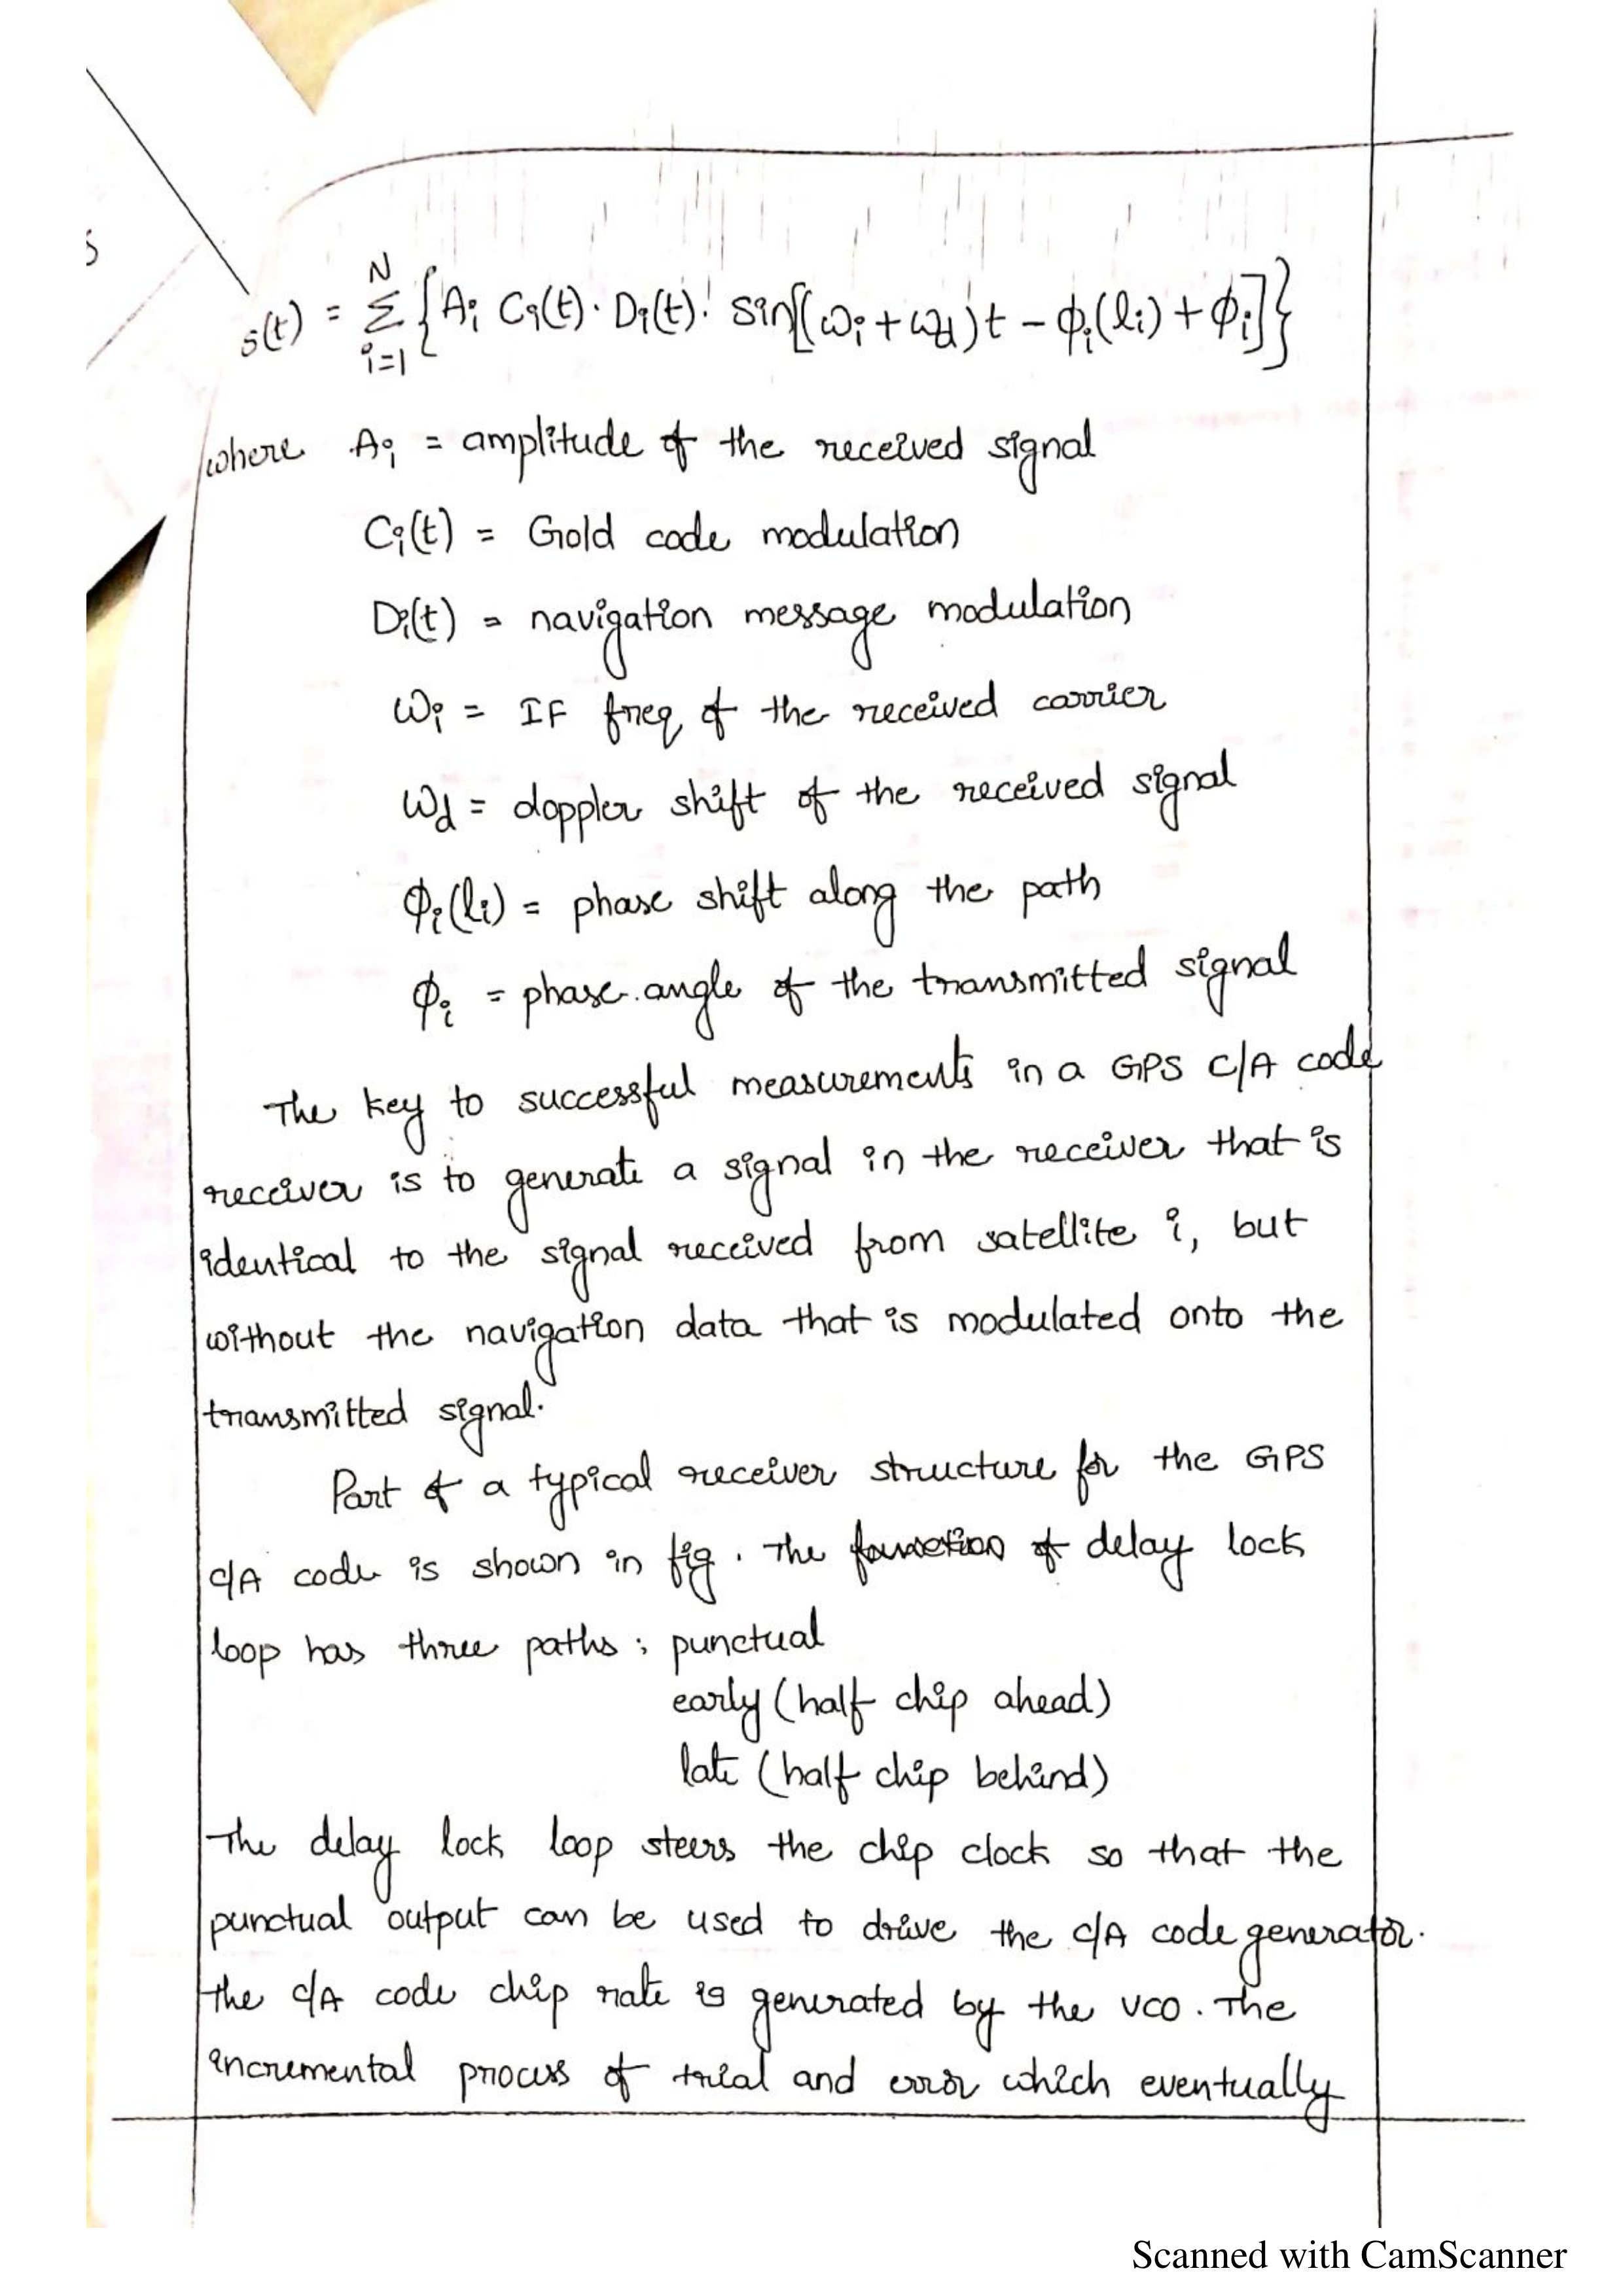 s(t) = N Σ i=1 {Ai Ci(t)·Di(t)· sin[(ωi+ωd)t − ϕi(li)+ϕi]}
where Ai = amplitude of the received signal
Ci(t) = Gold code modulation
Di(t) = navigation message modulation
ωi = IF freq of the received carrier
ωd = doppler shift of the received signal
ϕi(li) = phase shift along the path
ϕi = phase angle of the transmitted signal
The key to successful measurements in a GPS C/A code
receiver is to generate a signal in the receiver that is
identical to the signal received from satellite i, but
without the navigation data that is modulated onto the
transmitted signal.
Part of a typical receiver structure for the GPS
C/A code is shown in fig. The of delay lock
loop has three paths : punctual
early (half chip ahead)
late (half chip behind)
The delay lock loop steers the chip clock so that the
punctual output can be used to drive the C/A code generator.
the C/A code chip rate is generated by the VCO. The
incremental process of trial and error which eventually
Scanned with CamScanner